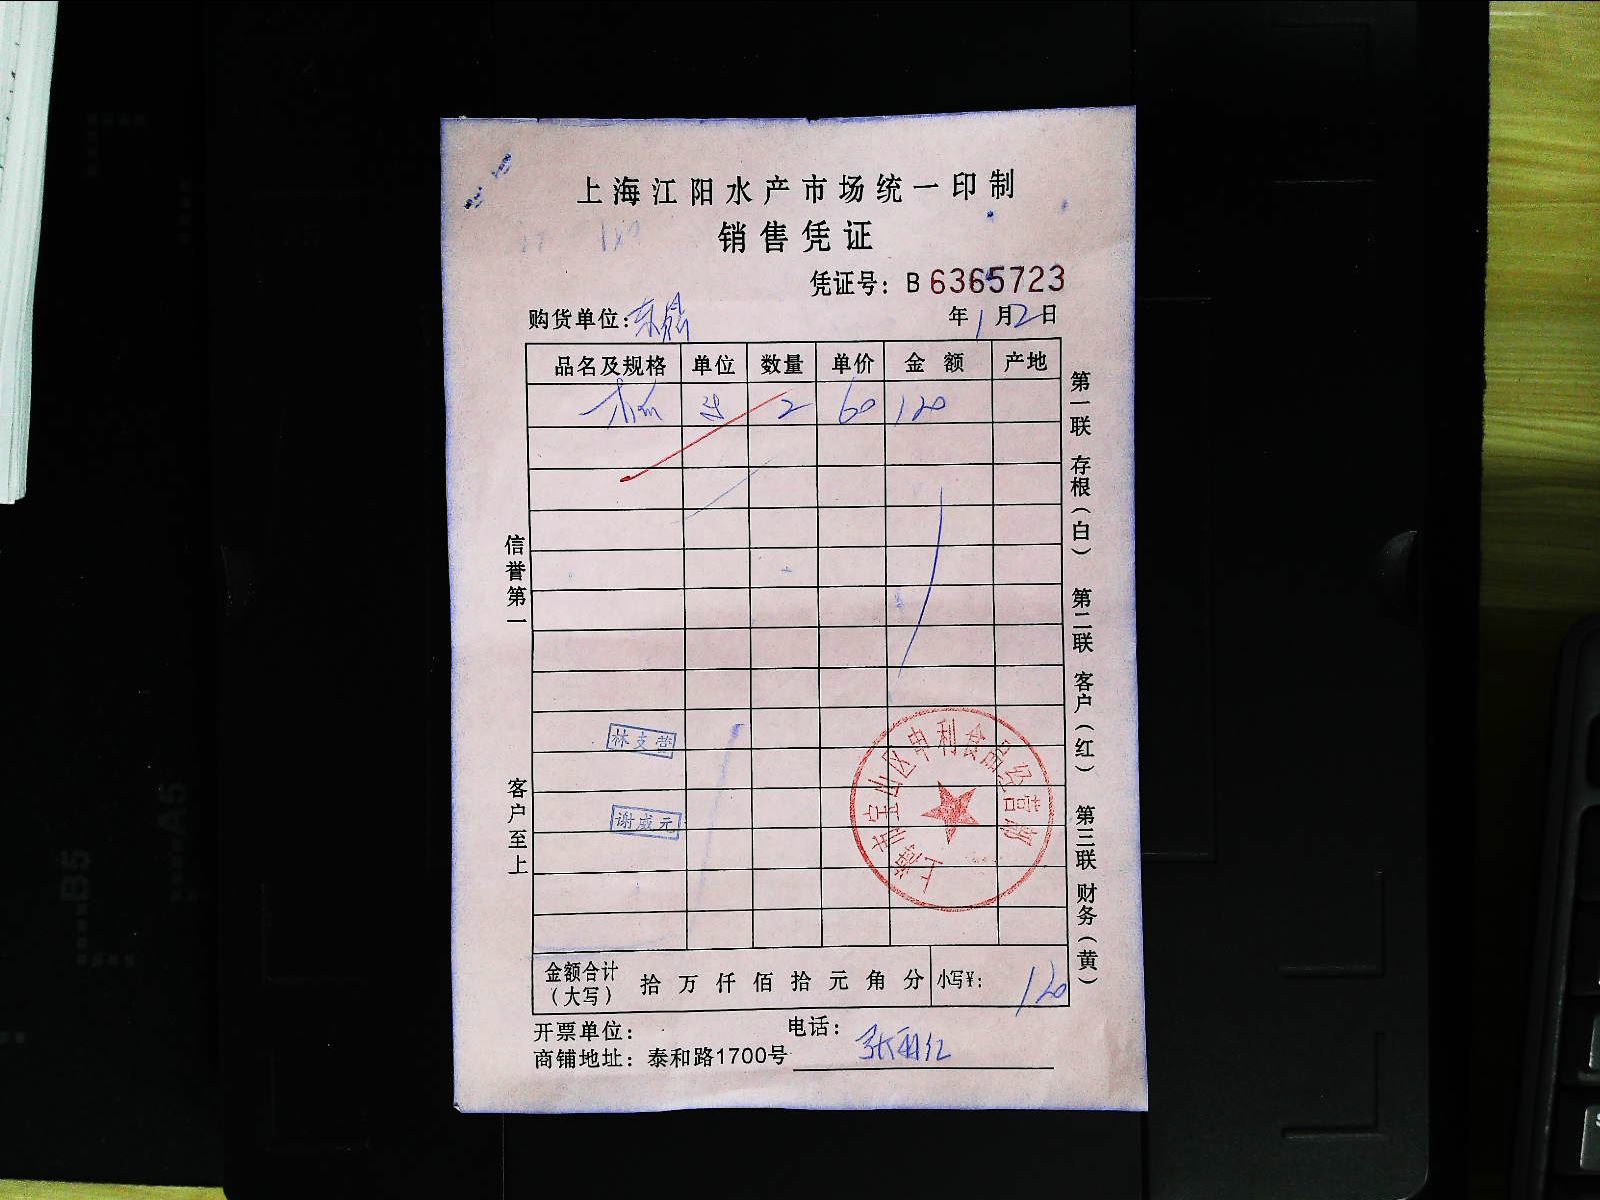 上海江阳水产市场统一印制
销售凭证
凭证号：B 6365723
购货单位： 年1月2日
品名及规格 单位 数量 单价 金额 产地
2 60 120
信誉第一
客户至上
第一联 存根（白） 第二联 客户（红） 第三联 财务（黄）
林支营
谢成元
上海市宝山区申利食品经营部
金额合计（大写） 拾 万 仟 佰 拾 元 角 分 小写¥： 120
开票单位： 电话：
商铺地址：泰和路1700号
B5
A5